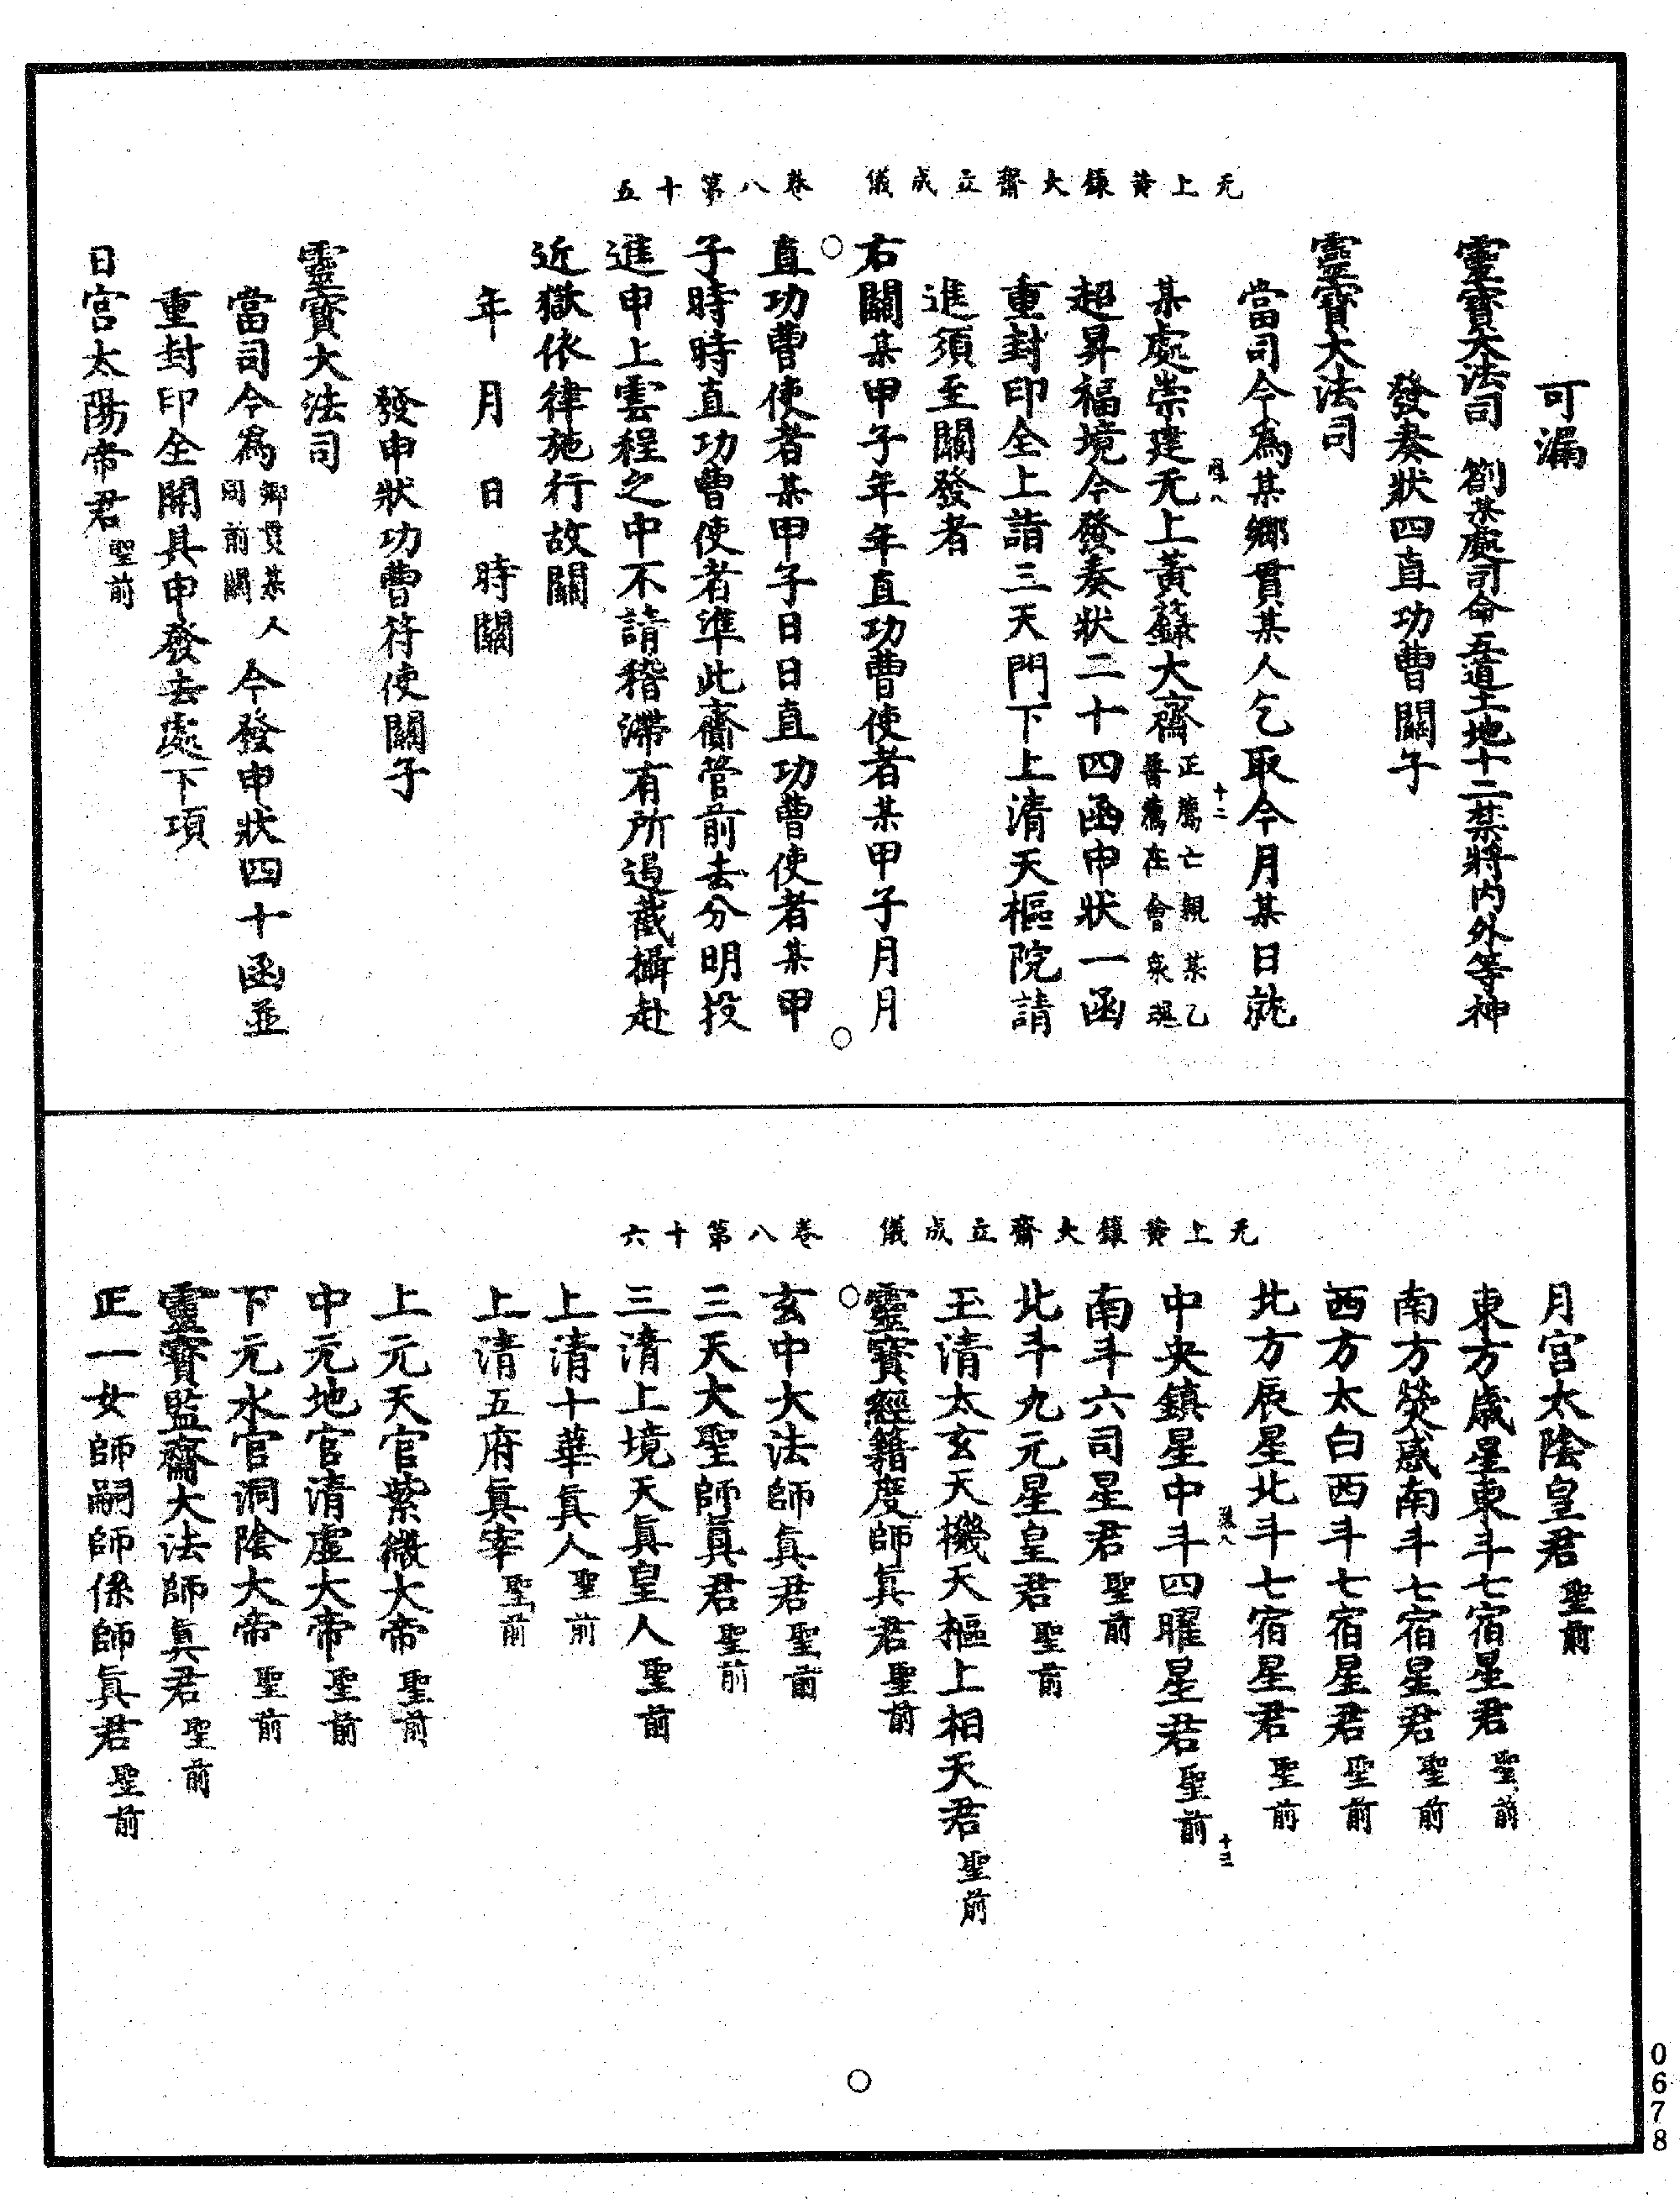 無上黃籙大齋立成儀　卷八第十五
可漏
靈寶大法司　劄某處司命五道土地十二禁將內外等神
發奏狀四直功曹關子
靈寶大法司
當司今爲某鄉貫某人乞取今月某日就
某處崇建无上黃籙大齋正薦亡親某乙普薦在會衆魂
超昇福境今發奏狀二十四函申狀一函
重封印全上詣三天門下上清天樞院請
進須至關發者
右關某甲子年年直功曹使者某甲子月月
直功曹使者某甲子日日直功曹使者某甲
子時時直功曹使者準此齎管前去分明投
進申上雲程之中不請稽滯有所遏截攝赴
近獄依律施行故關
年　月　日　時關
發申狀功曹符使關子
靈寶大法司
當司今爲鄉貫某人同前關今發申狀四十函並
重封印全開具申發去處下項
日宮太陽帝君聖前
无上黃籙大齋立成儀　卷八第十六
月宮太陰皇君聖前
東方歲星東斗七宿星君聖前
南方熒惑南斗七宿星君聖前
西方太白西斗七宿星君聖前
北方辰星北斗七宿星君聖前
中央鎮星中斗四曜星君聖前
十三
南斗六司星君聖前
北斗九元星皇君聖前
玉清太玄天機天樞上相天君聖前
靈寶經籍度師真君聖前
玄中大法師真君聖前
三天大聖師真君聖前
三清上境天真皇人聖前
上清十華真人聖前
上清五府真宰聖前
上元天官紫微大帝聖前
中元地官清虛大帝聖前
下元水官洞陰大帝聖前
靈寶監齋大法師真君聖前
正一女師嗣師係師真君聖前
0678